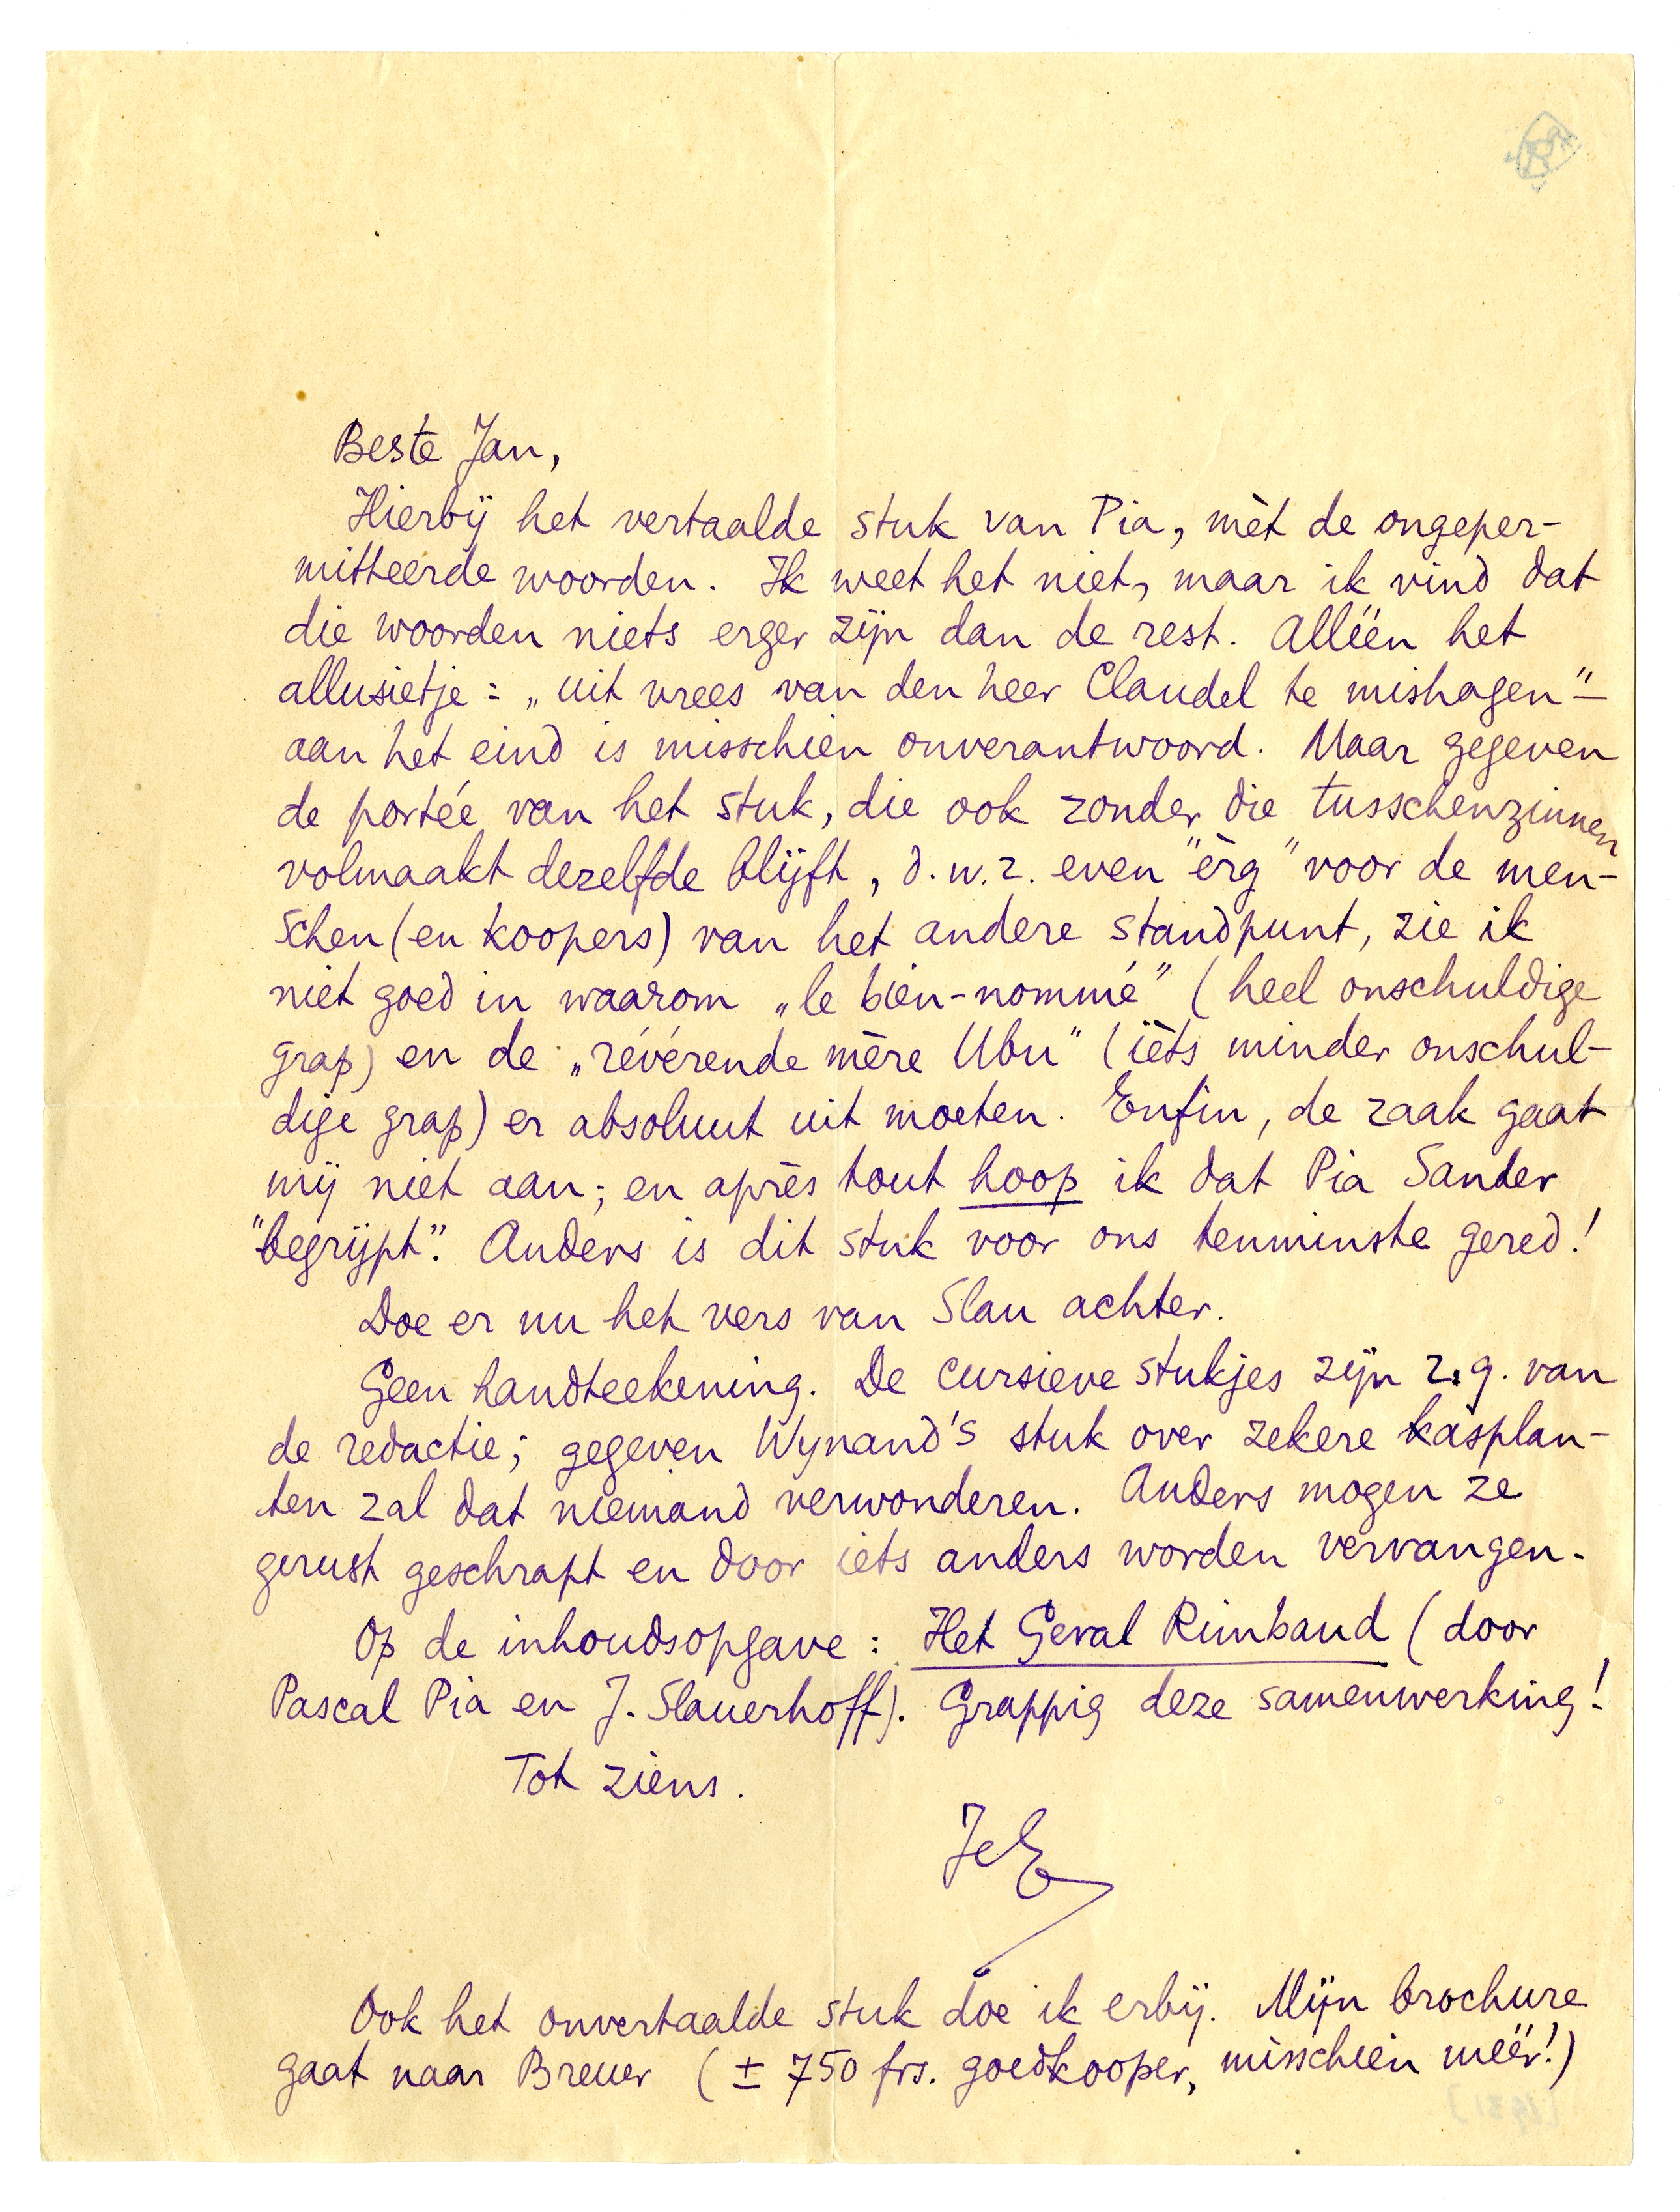 Beste Jan,
Hierbij het vertaalde stuk van Pia, mèt de ongeper-
mitteerde woorden. Ik weet het niet, maar ik vind dat
die woorden niets erger zijn dan de rest. Alléén het
allusietje: „uit vrees van den heer Claudel te mishagen"—
aan het eind is misschien onverantwoord. Maar gegeven
de portée van het stuk, die ook zonder die tusschenzinnen
volmaakt dezelfde blijft, d.w.z. even "èrg" voor de men-
schen (en koopers) van het andere standpunt, zie ik
niet goed in waarom „le bien-nommé" (heel onschuldige
grap) en de „révérende mère Ubu" (ièts minder onschul-
dige grap) er absoluut uit moeten. Enfin, de zaak gaat
mij niet aan; en après tout hoop ik dat Pia Sander
"begrijpt". Anders is dit stuk voor ons tenminste gered!
Doe er nu het vers van Slau achter.
Geen handteekening. De cursieve stukjes zijn z.g. van
de redactie; gegeven Wijnand's stuk over zekere kasplan-
ten zal dat niemand verwonderen. Anders mogen ze
gerust geschrapt en door iets anders worden vervangen.
Op de inhoudsopgave: Het Geval Rimbaud (door
Pascal Pia en J. Slauerhoff). Grappig deze samenwerking!
Tot ziens.
JdE
Ook het onvertaalde stuk doe ik erbij. Mijn brochure
gaat naar Breuer (± 750 frs. goedkooper, misschien méér!)